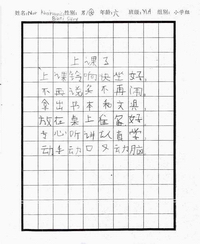 姓名: 性别: 年龄:六 班级: 组别:小学组
上课了
上课铃响快坐好，
不再说多不再闹，
拿出书本和文具，
放在桌上往备好
专心听讲认真学
动手动口又动脑